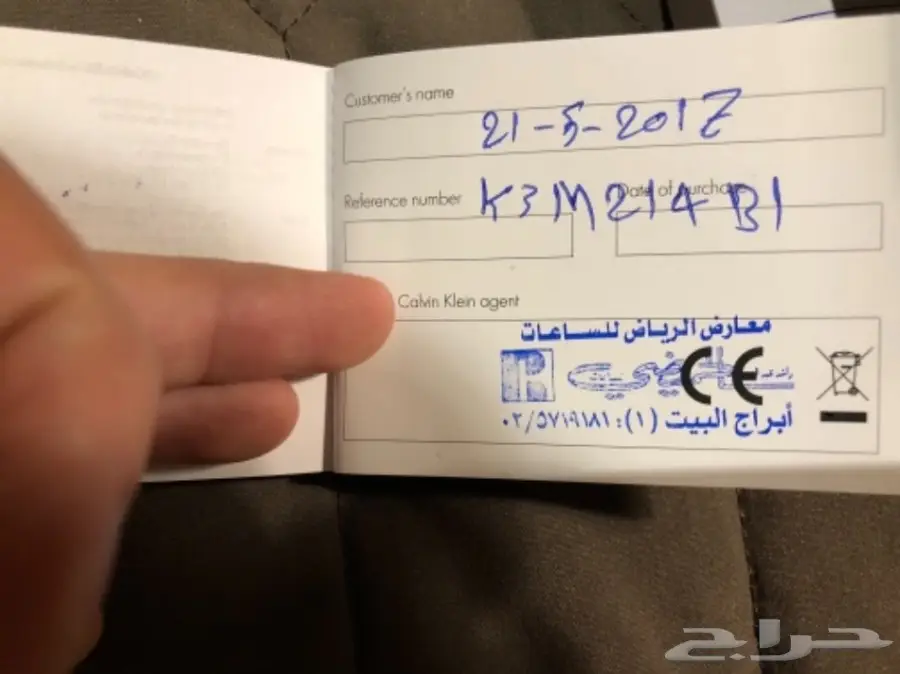 Customer's name
21-5-2017
Reference number
Date of purchase
K3M214B1
Calvin Klein agent
معارض الرياض للساعات
CE
أبراج البيت (١): ٠٢/٥٧١٩١٨١
حراج